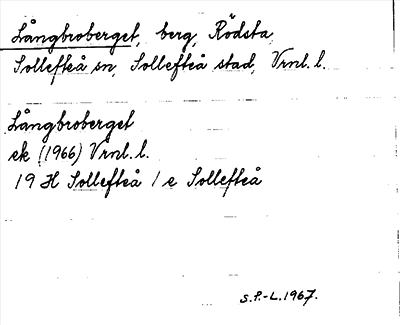 Långbroberget, berg, Rödsta
Sollefteå sn, Sollefteå stad, Vrnl. l.
Långbroberget
ek (1966) Vrnl. l.
19 H Sollefteå 1 e Sollefteå
S.P.-L. 1967.